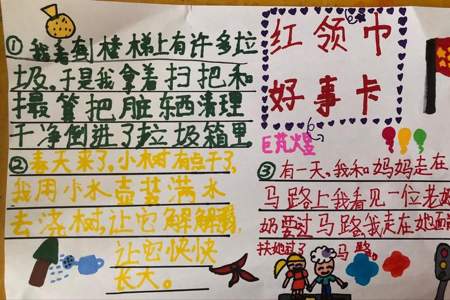 ①我看到楼梯上有许多垃
圾,于是我拿着扫把和
撮箕把脏东西清理
干净倒进了垃圾箱里
红领巾
好事卡
②春天来了,小树有点干了,
我用小水壶装满水
去浇树,让它解解渴,
让它快快
长大。
③有一天,我和妈妈走在
马路上我看见一位老奶
奶要过马路,我走在她面前
扶她过了马路。